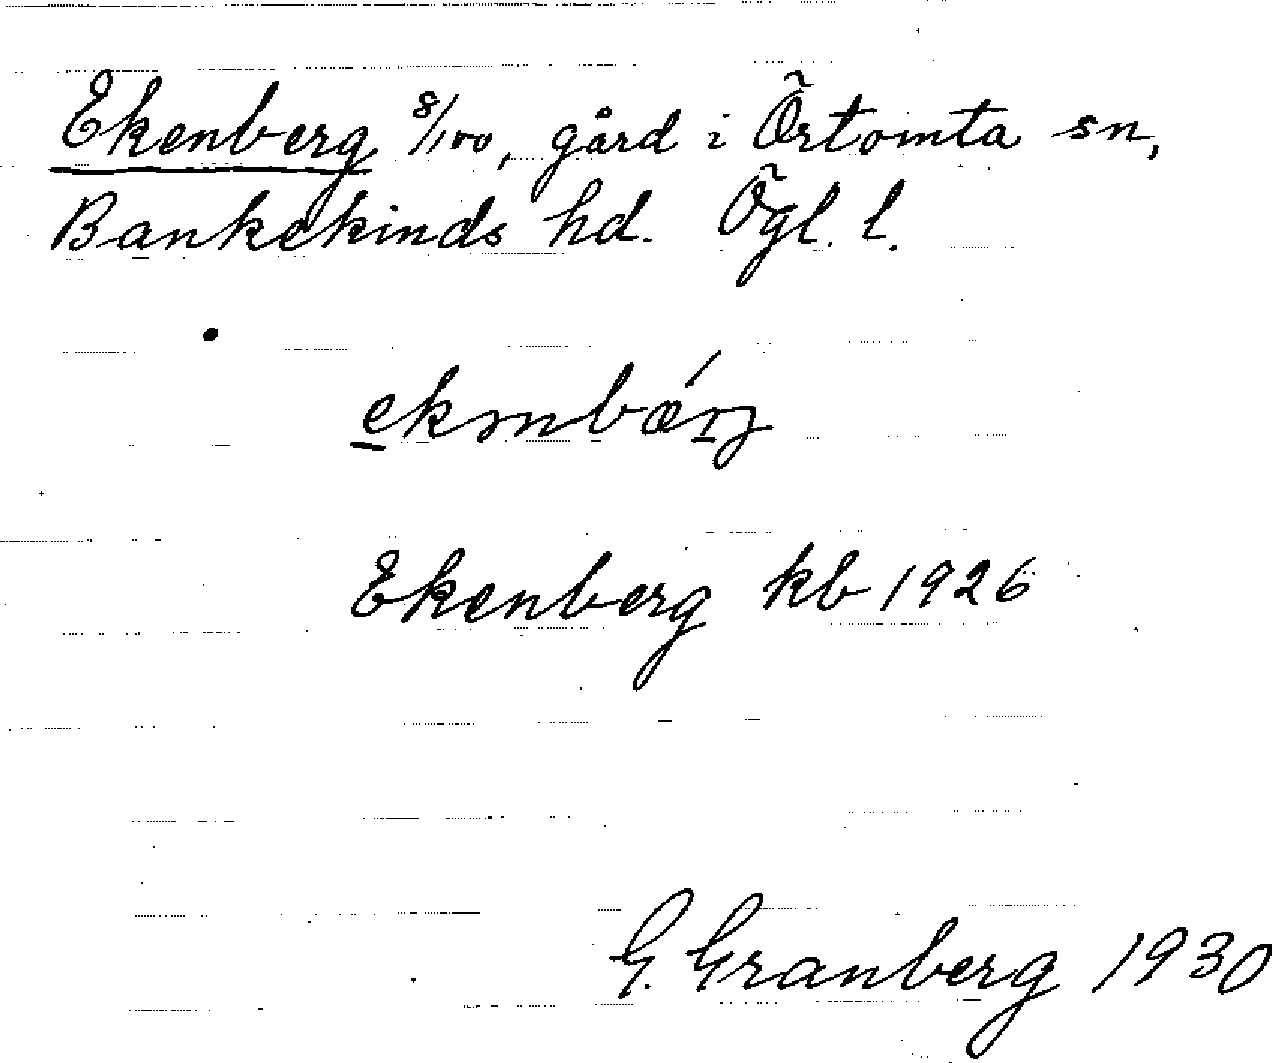 Ekenberg 8/100, gård i Örtomta sn,
Bankekinds hd. Ögl. l.
Ekenberg kb 1926
G. Granberg 1930